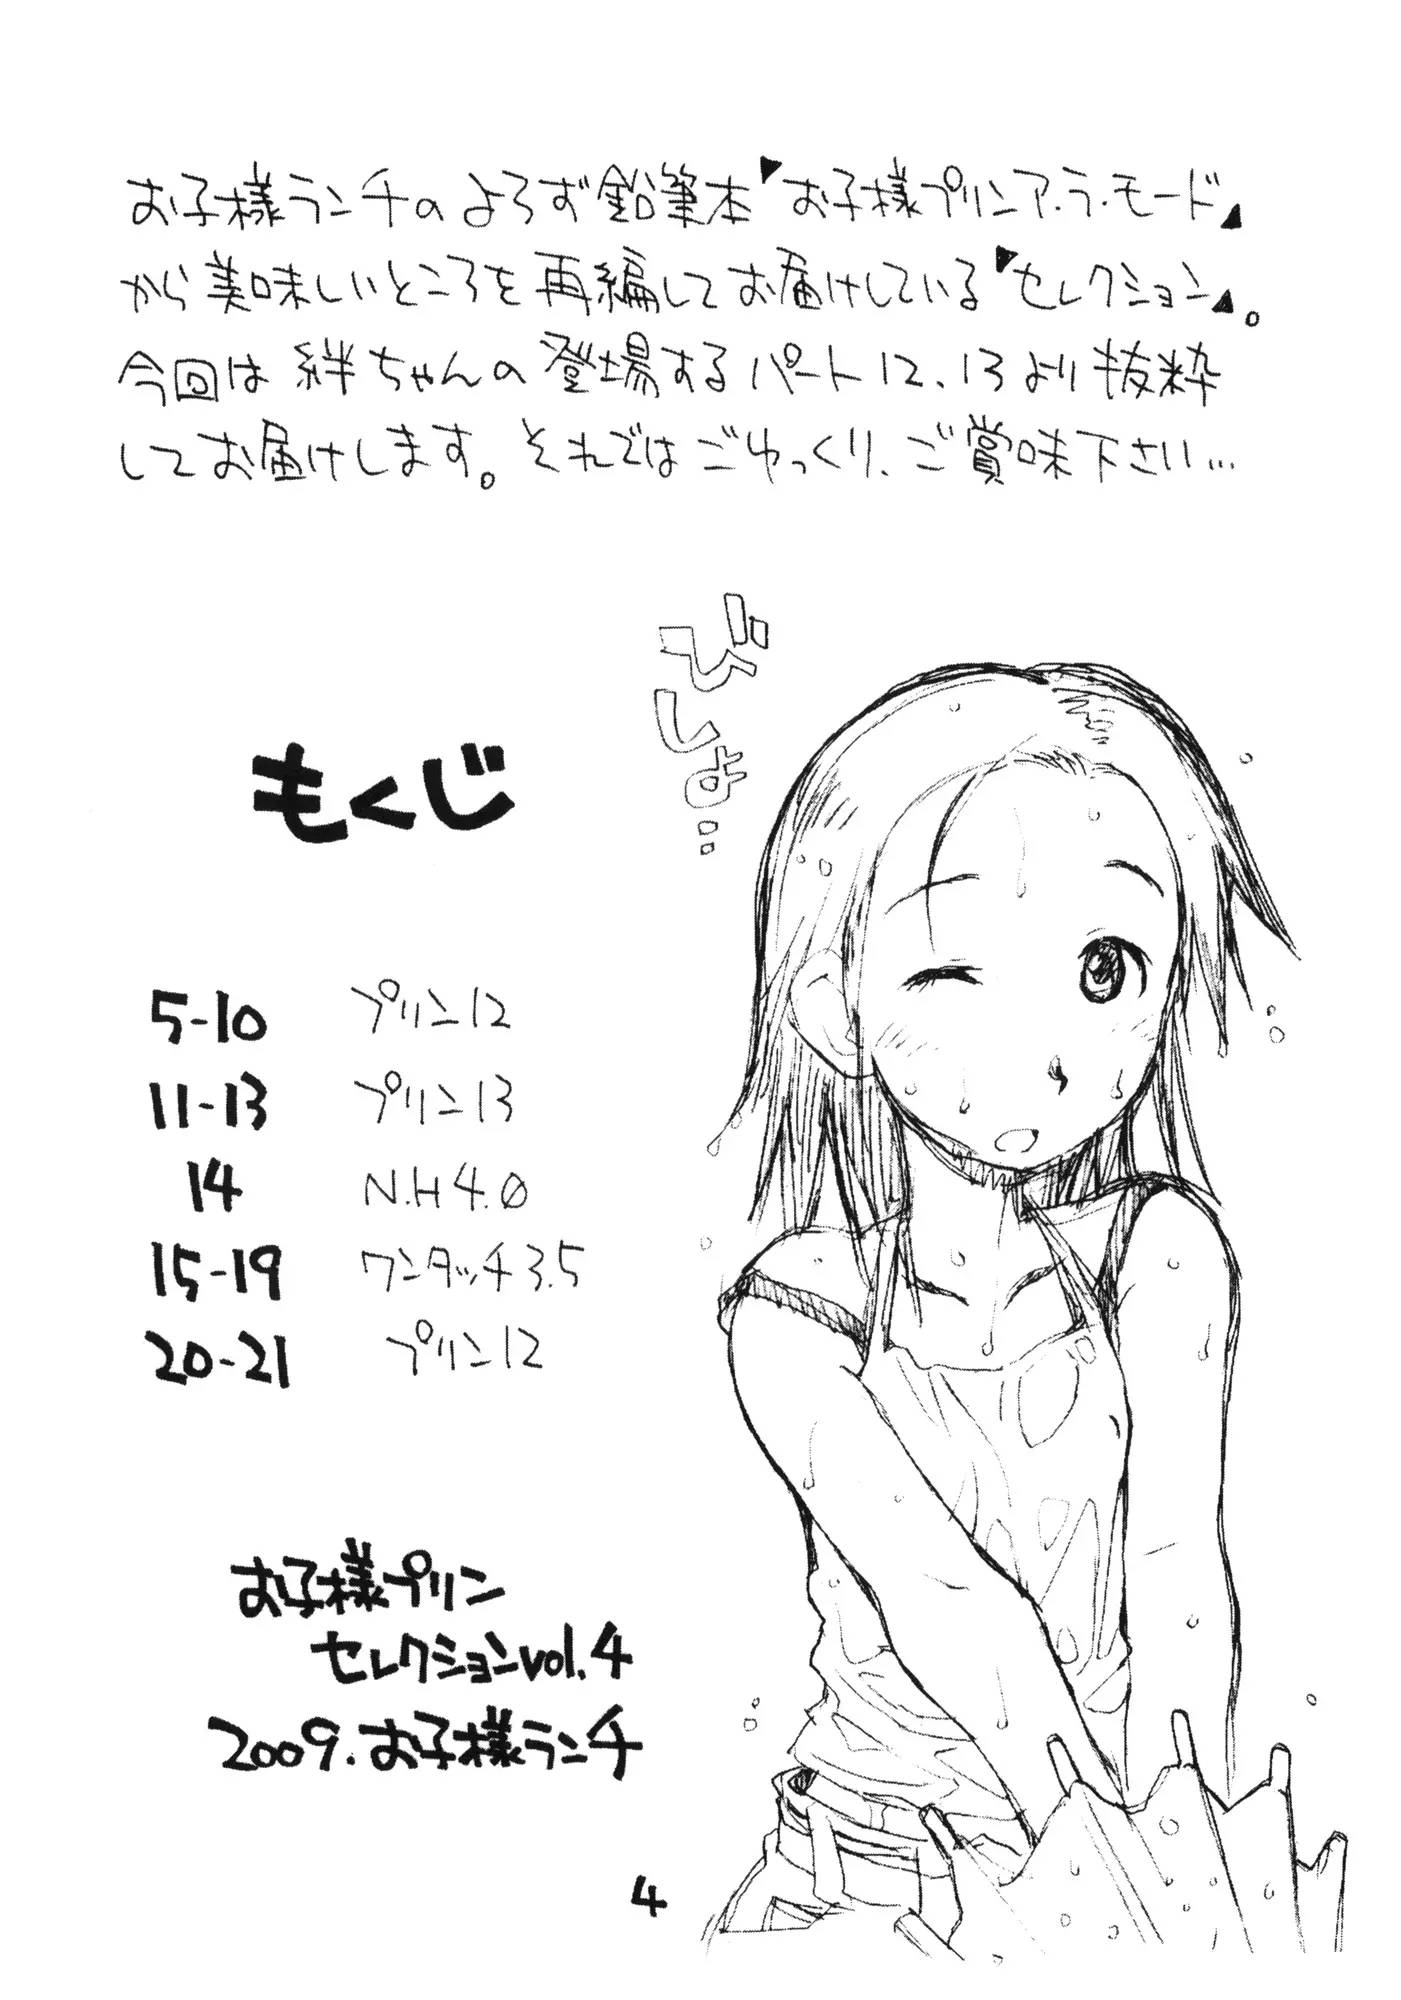 お子様ランチのよろず鉛筆本『お子様プリンア・ラ・モード』
から美味しいところを再編してお届けしている『セレクション』。
今回は絆ちゃんの登場するパート12、13より抜粋
してお届けします。それではごゆっくり、ご賞味下さい…
ぶしょ‥
もくじ
5-10 プリン12
11-13 プリン13
14 N.H4.0
15-19 ワンタッチ3.5
20-21 プリン12
お子様プリン
セレクションvol.4
2009.お子様ランチ
4